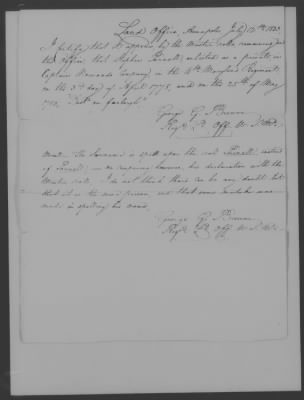 Land Office, Annapolis July 12th 1833
I certify that it appears by the Muster rolls remaining in
this Office, that Stephen Furnell enlisted as a private in
Captain Company in the 4th Maryland Regiment,
on the 3rd day of April 1778, and on the 25th of May
1778, on furlough"
George G. Brewer
Regr. Ld. Off. W. S. Md.
Note. The Surname is spelt upon the roll instead
of on comparing however, his declaration with the
Muster roll, I do not think there can be any doubt but
that it is the same person, and that some mistake was
made in spelling his name.
George G. Brewer
Regr. Ld. Off. W. S. Md.